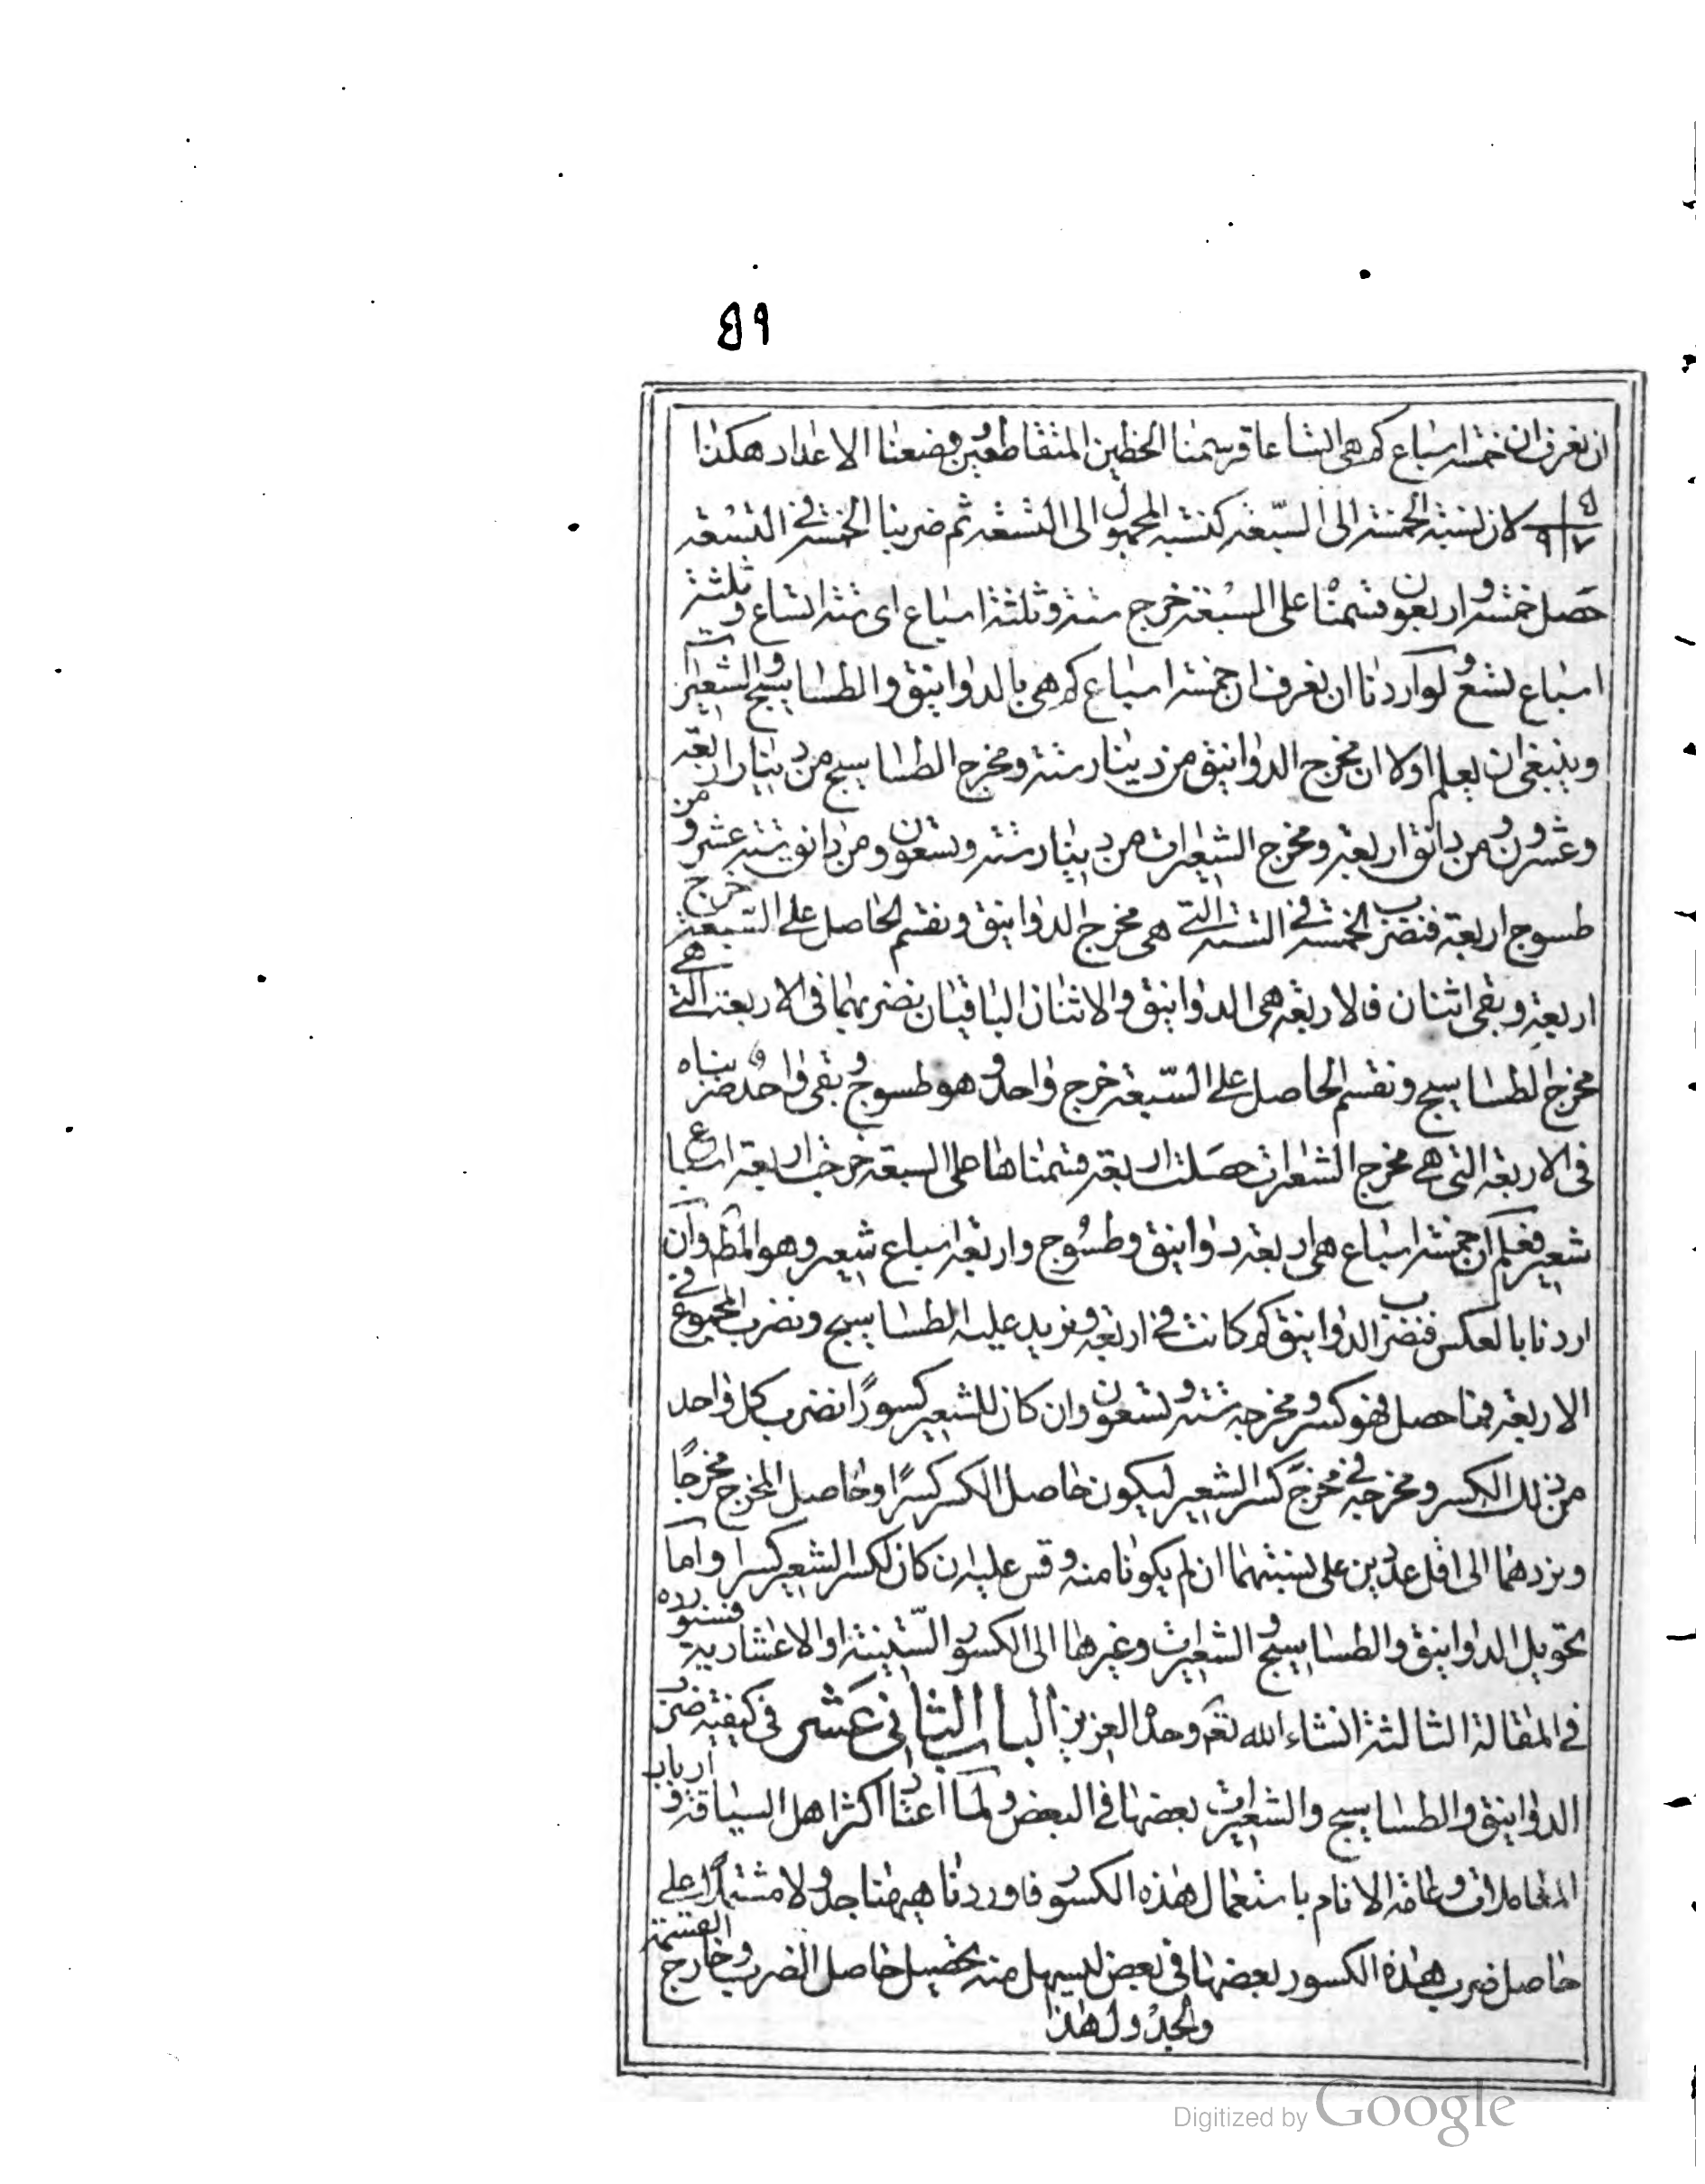 ٥٩
ان نعرف ان خمسة اسباع كم هى اتساعا فرسمنا الخطين المتقاطعين و وضعنا الاعداد هكذا
٥ ٧ ٩ لان نسبة الخمسة الى السبعة كنسبة المجهول الى التسعة ثم ضربنا الخمسة فى التسعة
حصل خمسة و اربعون قسمناه على السبعة خرج ستة و ثلثة اسباع اى ستة اتساع و ثلثة
اسباع تسع و لو اردنا ان نعرف ان خمسة اسباع كم هى بالدوانيق و الطساسيج و الشعيرات
و ينبغى ان يعلم اولا ان مخرج الدوانيق من دينار ستة و مخرج الطساسيج من دينار اربعة
و عشرون و من دانق اربعة و مخرج الشعيرات من دينار ستة و تسعون و من دانق ستة عشر و من
طسوج اربعة فنضرب الخمسة فى الستة التى هى مخرج الدوانيق و نقسم الحاصل على السبعة خرج
اربعة و بقى اثنان فالاربعة هى الدوانيق و الاثنان الباقيان نضربهما فى الاربعة التى هى
مخرج الطساسيج و نقسم الحاصل على السبعة خرج واحد و هو طسوج و بقى واحد ضربناه
فى الاربعة التى هى مخرج الشعيرات حصلت اربعة قسمناها على السبعة خرجت اربعة اسباع
شعير فعلم ان خمسة اسباع هى اربعة دوانيق و طسوج و اربعة اسباع شعير و هو المط و ان
اردنا بالعكس فنضرب الدوانيق كم كانت فى اربعة و نزيد عليه الطساسيج و نضرب المجموع فى
الاربعة فما حصل فهو كسر و مخرجه ستة و تسعون و ان كان للشعير كسورًا نضرب كل واحد
من ذلك الكسر و مخرجه فى مخرج كسر الشعير ليكون حاصل الكسر كسرًا و حاصل المخرج مخرجًا
و نردهما الى اقل عددين على نسبتهما ان لم يكونا منه و قس عليه ان كان لكسر الشعير كسرا و اما
تحويل الدوانيق و الطساسيج و الشعيرات و غيرها الى الكسور الستينية او الاعشارية فسنورده
فى المقالة الثالثة انشاء الله تعم وحده العزيز الباب الثانى عشر فى كيفية ضرب
الدوانيق و الطساسيج و الشعيرات بعضها فى البعض و لما اعتاد اكثر اهل السياقة و ارباب
المعاملات و عامة الانام باستعمال هذه الكسور فاوردنا هيهنا جدولا مشتملا على
حاصل ضرب هذه الكسور بعضها فى بعض ليسهل منه تحصيل حاصل الضرب و خارج القسمة
و الجدول هذا
Digitized by Google